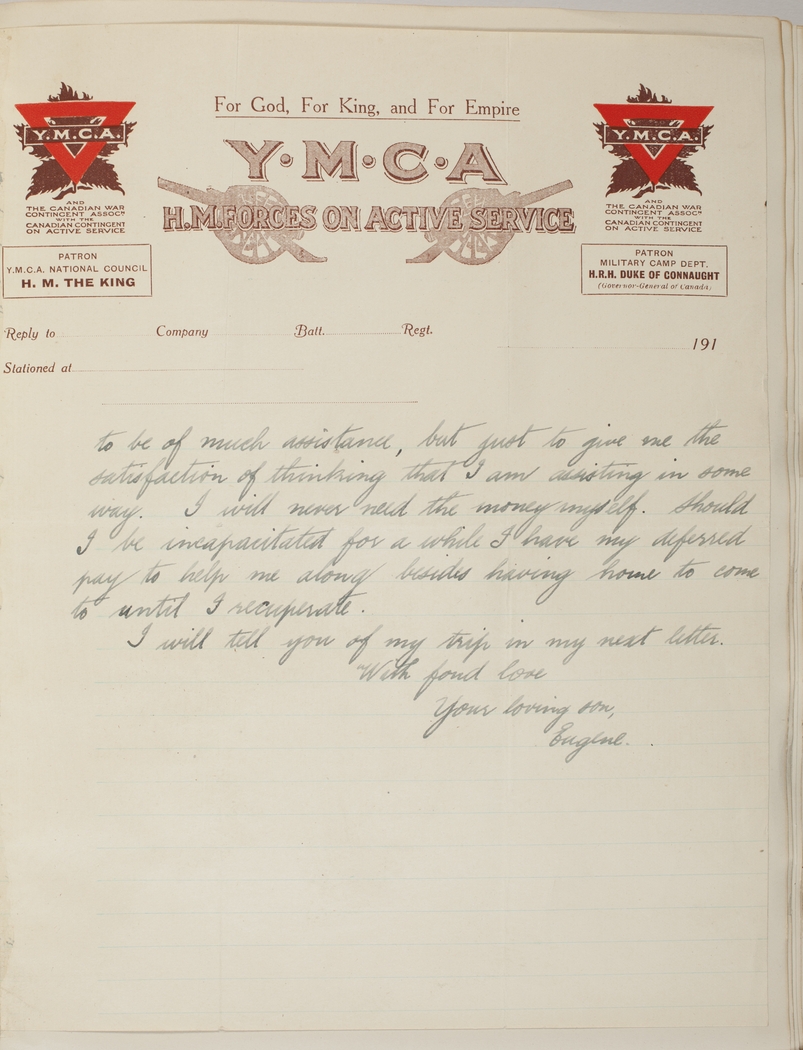 For God, For King, and For Empire
Y·M·C·A
H.M. FORCES ON ACTIVE SERVICE
Y.M.C.A.
AND
THE CANADIAN WAR
CONTINGENT ASSOCN
WITH THE
CANADIAN CONTINGENT
ON ACTIVE SERVICE
PATRON
Y.M.C.A. NATIONAL COUNCIL
H. M. THE KING
Y.M.C.A.
AND
THE CANADIAN WAR
CONTINGENT ASSOCN
WITH THE
CANADIAN CONTINGENT
ON ACTIVE SERVICE
PATRON
MILITARY CAMP DEPT.
H.R.H. DUKE OF CONNAUGHT
(Governor-General of Canada)
Reply to Company Batt. Regt.
191
Stationed at
to be of much assistance, but just to give me the
satisfaction of thinking that I am assisting in some
way. I will never need the money myself. Should
I be incapacitated for a while I have my deferred
pay to help me along besides having home to come
to until I recuperate.
I will tell you of my trip in my next letter.
With fond love
Your loving son,
Eugene.